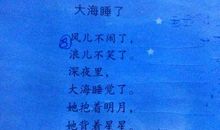 大海睡了
风儿不闹了，
浪儿不笑了。
深夜里，
大海睡觉了。
她抱着明月，
她背着星星，